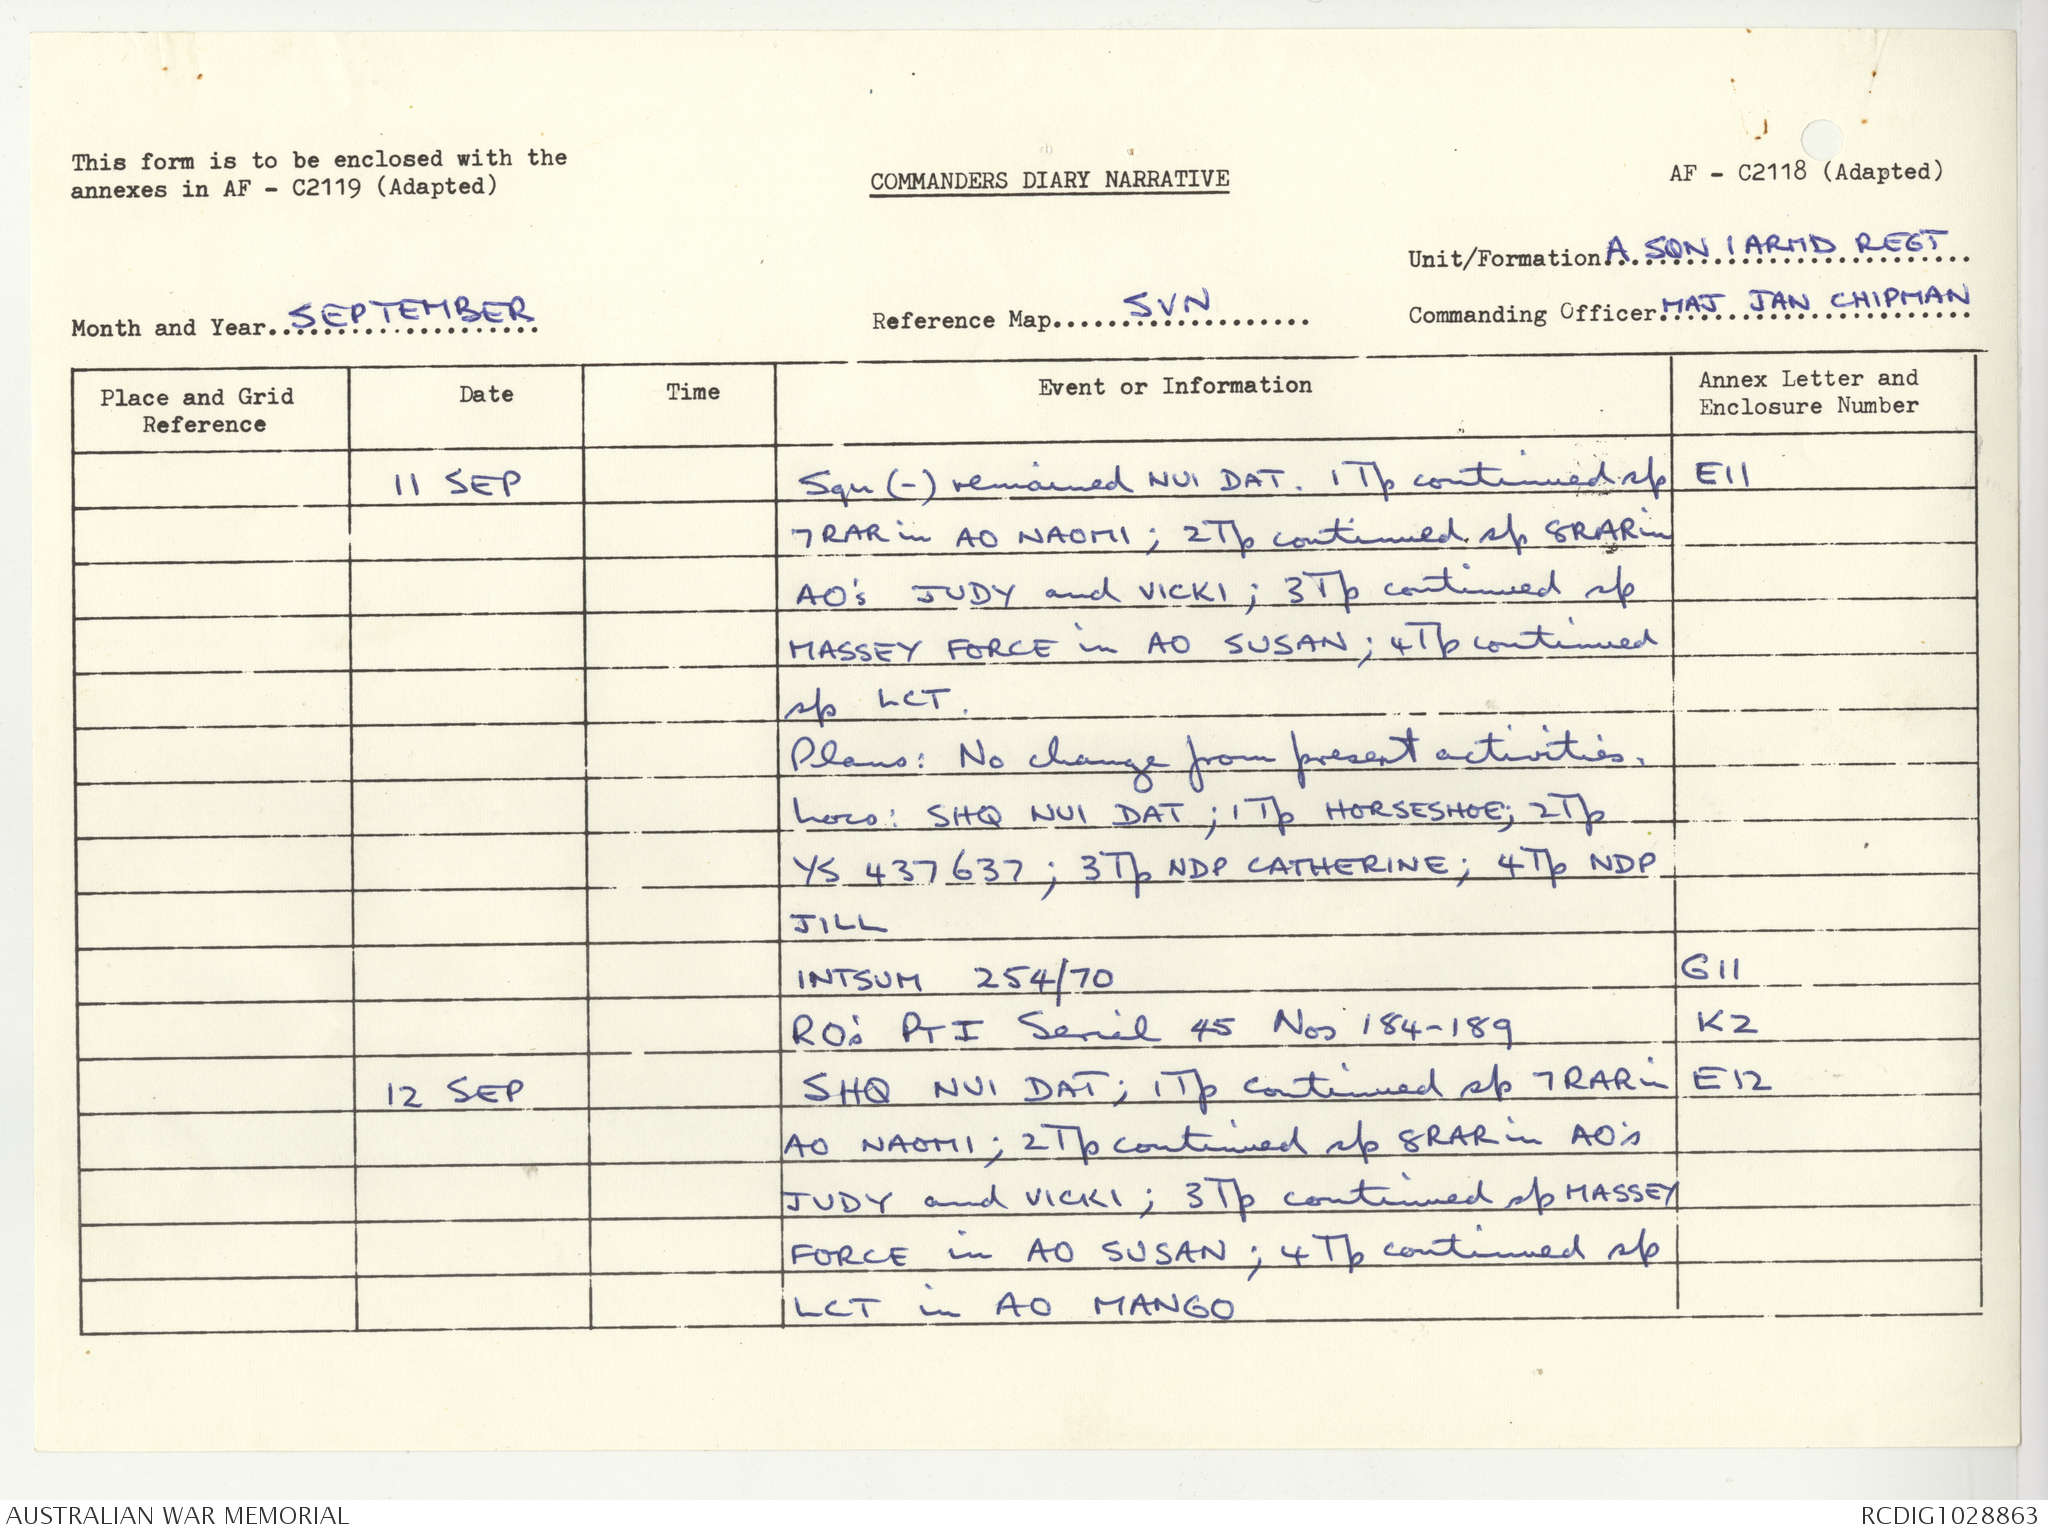 This form is to be enclosed with the
annexes in AF - C2119 (Adapted)
COMMANDERS DIARY NARRATIVE
AF - C2118 (Adapted)
Unit/Formation A SQN 1 ARMD REGT
Month and Year SEPTEMBER
Reference Map SVN
Commanding Officer MAJ JAN CHIPMAN
Place and Grid Reference
Date
Time
Event or Information
Annex Letter and Enclosure Number
11 SEP Sqn (-) remained NUI DAT. 1Tp continued sp E11
7RAR in AO NAOMI; 2Tp continued sp 8RAR in
AO's JUDY and VICKI; 3Tp continued sp
MASSEY FORCE in AO SUSAN; 4Tp continued
sp LCT.
Plans: No change from present activities.
Locs: SHQ NUI DAT; 1Tp HORSESHOE; 2Tp
YS 437637; 3Tp NDP CATHERINE; 4Tp NDP
JILL
INTSUM 254/70 G11
RO's PT I Serial 45 Nos 184-189 K2
12 SEP SHQ NUI DAT; 1Tp continued sp 7RAR in E12
AO NAOMI; 2Tp continued sp 8RAR in AO's
JUDY and VICKI; 3Tp continued sp MASSEY
FORCE in AO SUSAN; 4Tp continued sp
LCT in AO MANGO
AUSTRALIAN WAR MEMORIAL
RCDIG1028863